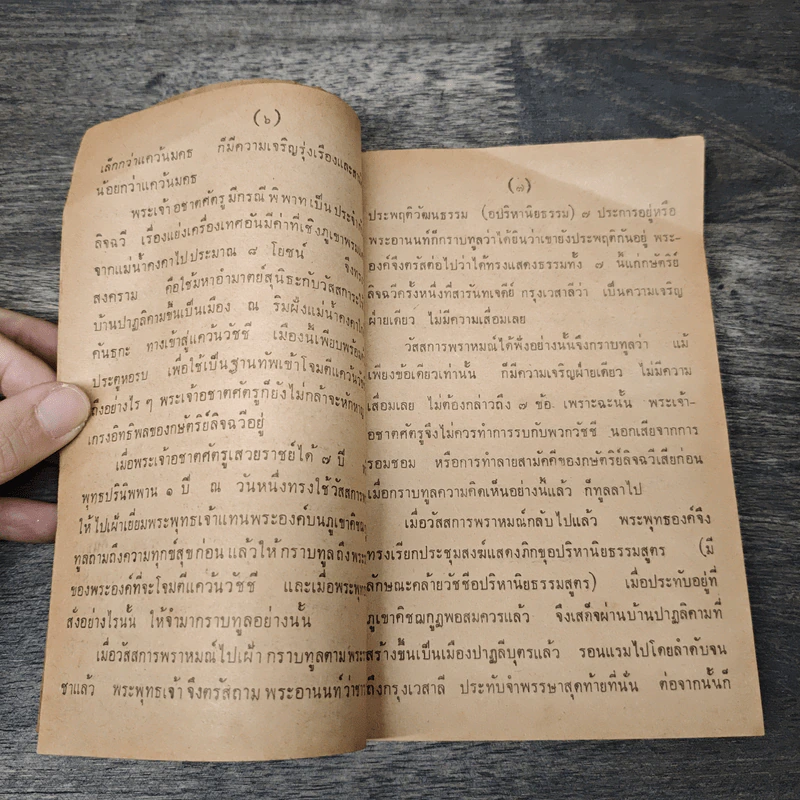 (๖)
เล็กกว่าแคว้นมคธ ก็มีความเจริญรุ่งเรืองและ
น้อยกว่าแคว้นมคธ
พระเจ้าอชาตศัตรูมีกรณีพิพาทเป็นประจำ
ลิจฉวี เรื่องแย่งเครื่องเทศอันมีค่าที่เชิงภูเขาพรม
จากแม่น้ำคงคาไปประมาณ ๘ โยชน์ จึง
สงคราม คือใช้มหาอำมาตย์สุนิธะกับวัสสการะ
บ้านปาฏลิคามขึ้นเป็นเมือง ณ ริมฝั่งแม่น้ำคงคา
คันธุกะ ทางเข้าสู่แคว้นวัชชี เมืองนี้เพียบพร้อม
ประตูหอรบ เพื่อใช้เป็นฐานทัพเข้าโจมตีแคว้นวัช
ถึงอย่างไร ๆ พระเจ้าอชาตศัตรูก็ยังไม่กล้าจะหักหาญ
เกรงอิทธิพลของกษัตริย์ลิจฉวีอยู่
เมื่อพระเจ้าอชาตศัตรูเสวยราชย์ได้ ๗ ปี
พุทธปรินิพพาน ๑ ปี ณ วันหนึ่งทรงใช้วัสสการ
ให้ไปเฝ้าเยี่ยมพระพุทธเจ้าแทนพระองค์บนภูเขาคิชฌ
ทูลถามถึงความทุกข์สุขก่อน แล้วให้กราบทูลถึงพระ
ของพระองค์ที่จะโจมตีแคว้นวัชชี และเมื่อพระพุทธ
สั่งอย่างไรนั้น ให้จำมากราบทูลอย่างนั้น
เมื่อวัสสการพราหมณ์ไปเฝ้า กราบทูลตามพระ
ชาแล้ว พระพุทธเจ้าจึงตรัสถามพระอานนท์ว่าชาว
(๗)
ประพฤติวัฒนธรรม (อปริหานิยธรรม) ๗ ประการอยู่หรือ
พระอานนท์ก็กราบทูลว่าได้ยินว่าเขายังประพฤติกันอยู่ พระ-
องค์จึงตรัสต่อไปว่าได้ทรงแสดงธรรมทั้ง ๗ นี้แก่กษัตริย์
ลิจฉวีครั้งหนึ่งที่สารันทเจดีย์ กรุงเวสาลีว่า เป็นความเจริญ
ฝ่ายเดียว ไม่มีความเสื่อมเลย
วัสสการพราหมณ์ได้ฟังอย่างนั้นจึงกราบทูลว่า แม้
เพียงข้อเดียวเท่านั้น ก็มีความเจริญฝ่ายเดียว ไม่มีความ
เสื่อมเลย ไม่ต้องกล่าวถึง ๗ ข้อ เพราะฉะนั้น พระเจ้า-
อชาตศัตรูจึงไม่ควรทำการรบกับพวกวัชชี นอกเสียจากการ
รอมชอม หรือการทำลายสามัคคีของกษัตริย์ลิจฉวีเสียก่อน
เมื่อกราบทูลความคิดเห็นอย่างนี้แล้ว ก็ทูลลาไป
เมื่อวัสสการพราหมณ์กลับไปแล้ว พระพุทธองค์จึง
ทรงเรียกประชุมสงฆ์แสดงภิกขุอปริหานิยธรรมสูตร (มี
ลักษณะคล้ายวัชชีอปริหานิยธรรมสูตร) เมื่อประทับอยู่ที่
ภูเขาคิชฌกูฏพอสมควรแล้ว จึงเสด็จผ่านบ้านปาฏลิคามที่
สร้างขึ้นเป็นเมืองปาฏลีบุตรแล้ว รอนแรมไปโดยลำดับจน
ถึงกรุงเวสาลี ประทับจำพรรษาสุดท้ายที่นั่น ต่อจากนั้นก็